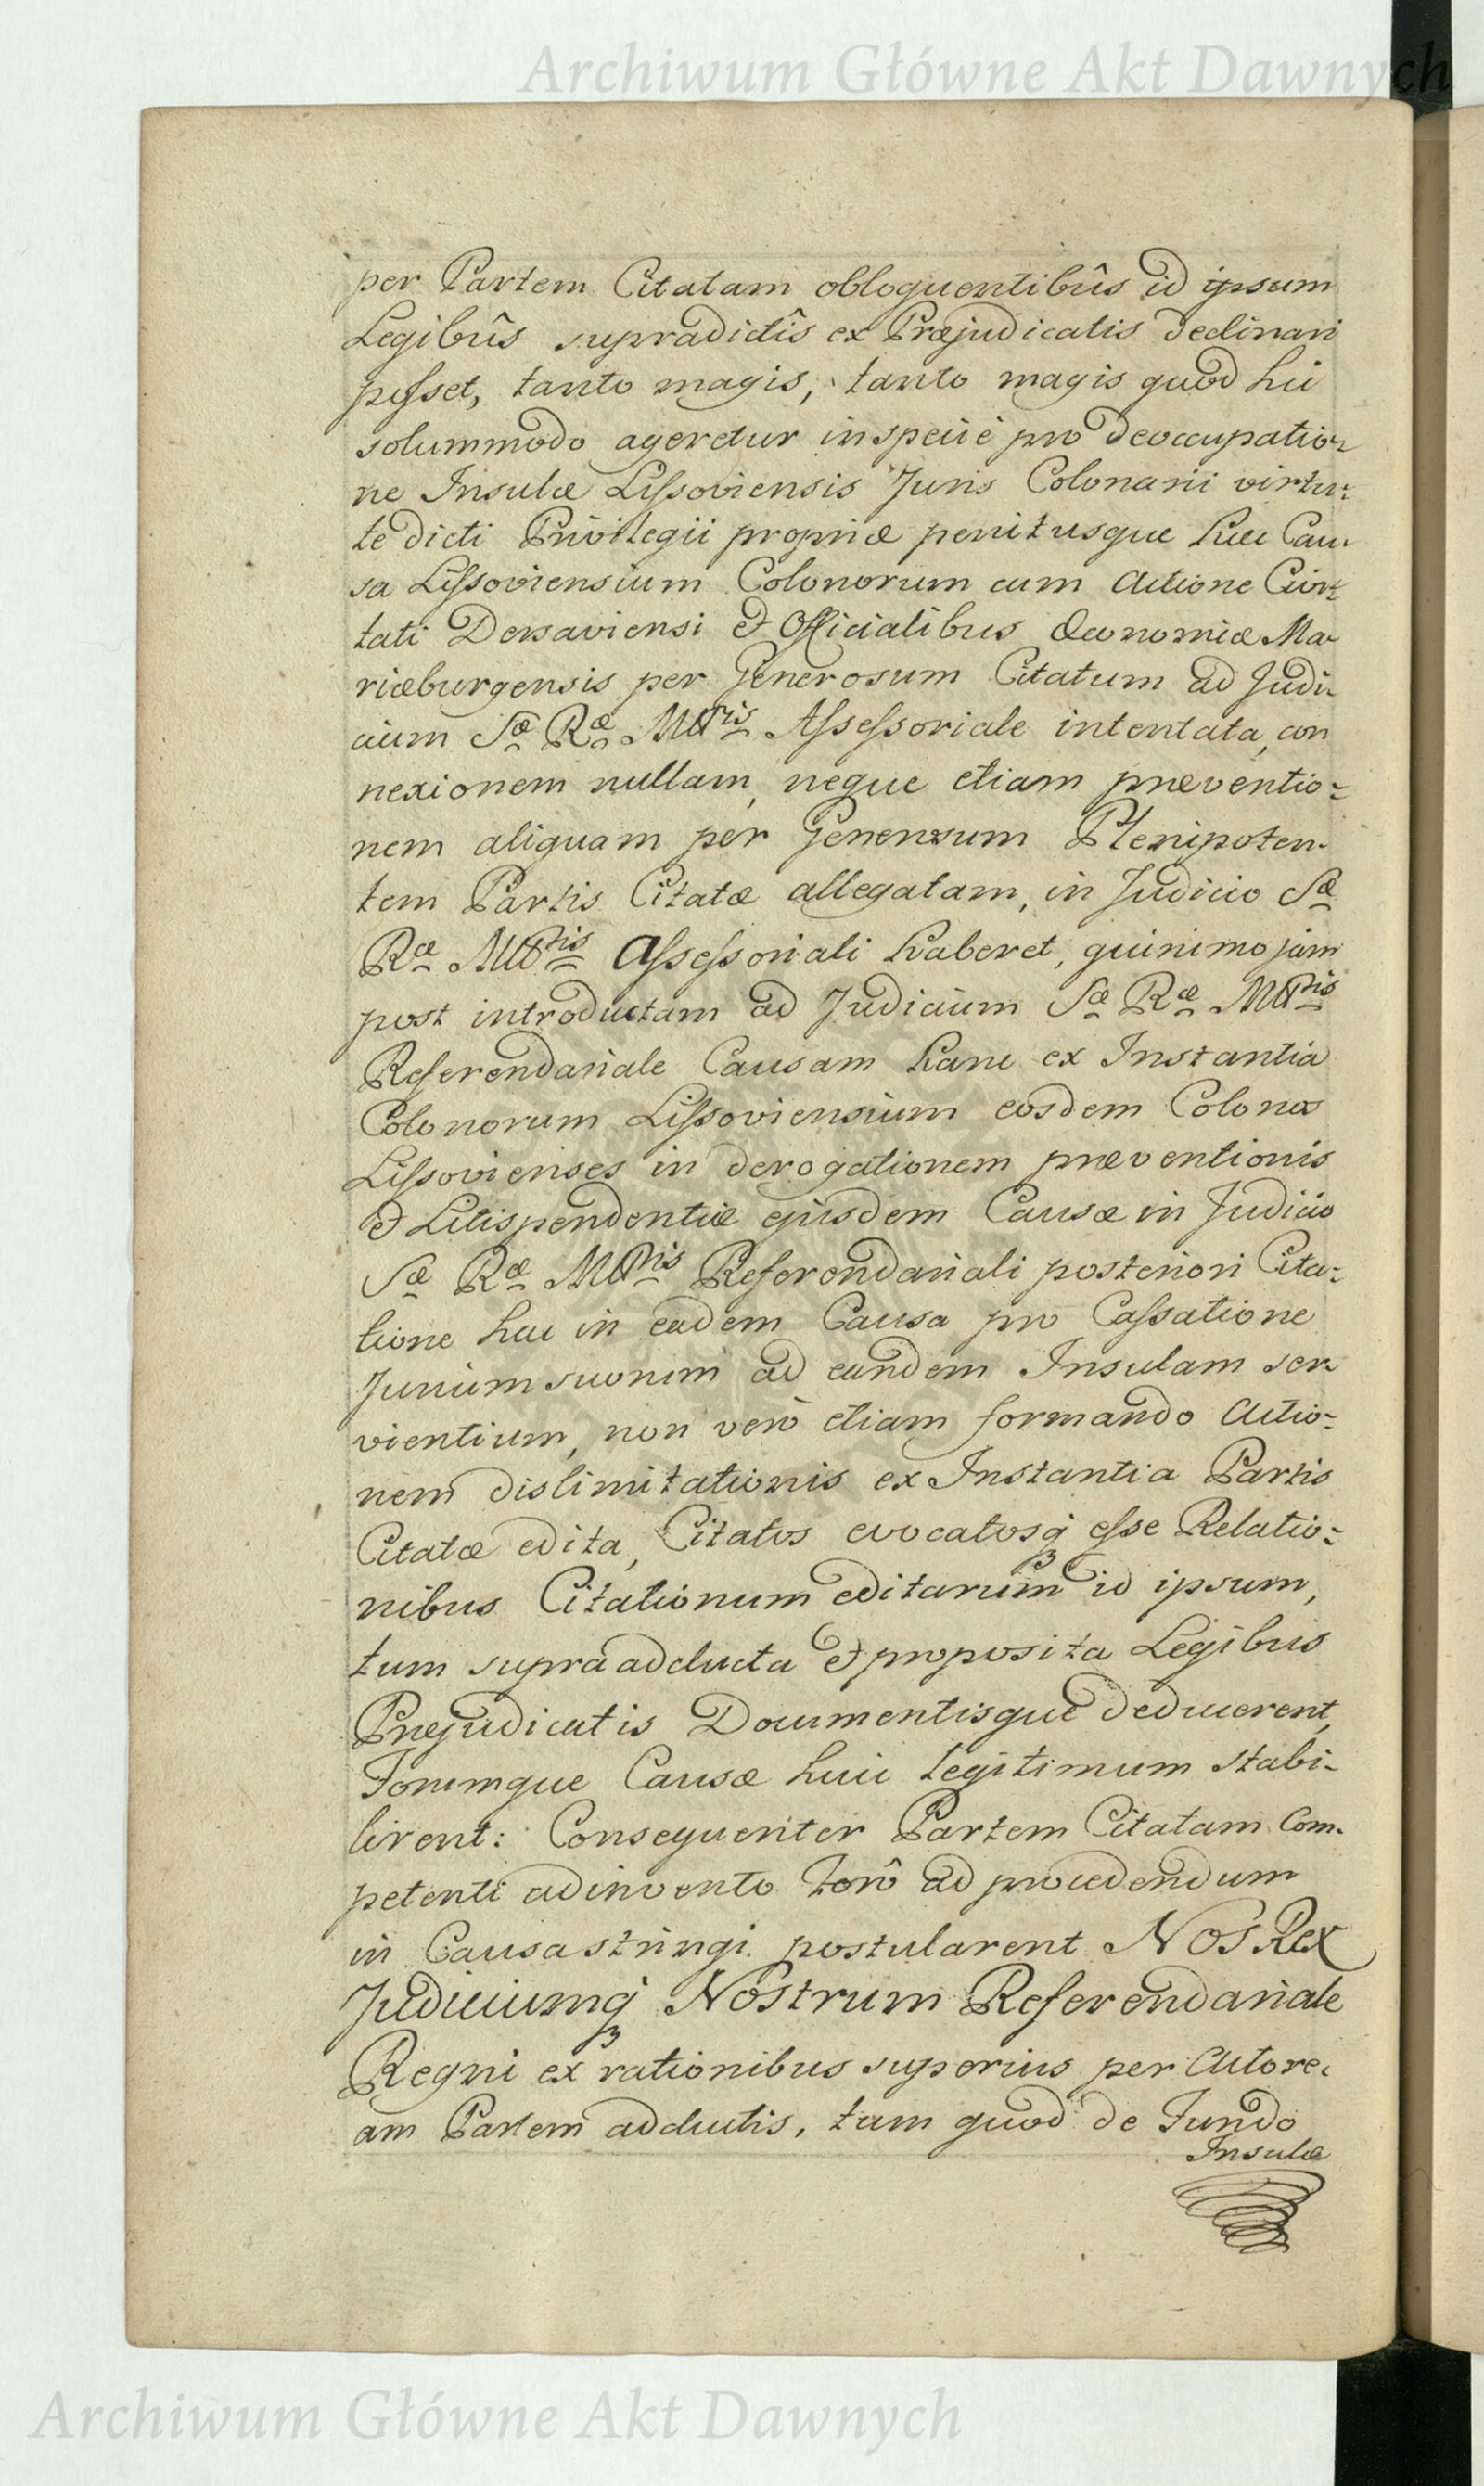 Archiwum Główne Akt Dawnych
per Partem Citatam obloquentibûs id ipsum
Legibûs supradictîs ex Præjudicatis declinari
posset, tanto magis, tanto magis quod hic
solummodo ageretur in specie pro deoccupatio-
ne Insulæ Lissoviensis Juris Colonarii virtu-
te dicti Privilegii propriæ penitusque hæc Cau-
sa Lissoviensium Colonorum cum Actione Civi-
tati Dersaviensi et Officialibus Œconomiæ Ma-
riæburgensis per Generosum Citatum ad Judi-
cium Sæ Ræ Mttis Assessoriale intentata, con
nexionem nullam, neque etiam præventio-
nem aliquam per Generosum Plenipoten-
tem Partis Citatæ allegatam, in Judicio Sæ
Ræ Mttis Assessoriali haberet, quinimo jam
post introductam ad Judicium Sæ Ræ Mttis
Referendariale Causam hanc ex Instantia
Colonorum Lissoviensium eosdem Colonos
Lissovienses in derogationem præventionis
et Litispendentiæ ejusdem Causæ in Judicio
Sæ Ræ Mttis Referendariali posteriori Cita-
tione hac in eadem Causa pro Cassatione
Jurium suorum ad eandem Insulam ser-
vientium, non verò etiam formando Actio-
nem dislimitationis ex Instantia Partis
Citatæ edita, Citatos evocatosq esse Relatio-
nibus Citationum editarum id ipsum,
tum supra adducta et proposita Legibus
Præjudicatis Documentisque deducerent,
Forumque Causæ huic legitimum stabi-
lirent: Consequenter Partem Citatam Com-
petenti adinvento forô ad procedendum
in Causa stringi postularent NOS Rex
Judiciumq Nostrum Referendariale
Regni ex rationibus superius per Actore-
am Partem adductis, tam quod de Fundo
Insulæ
Archiwum Główne Akt Dawnych